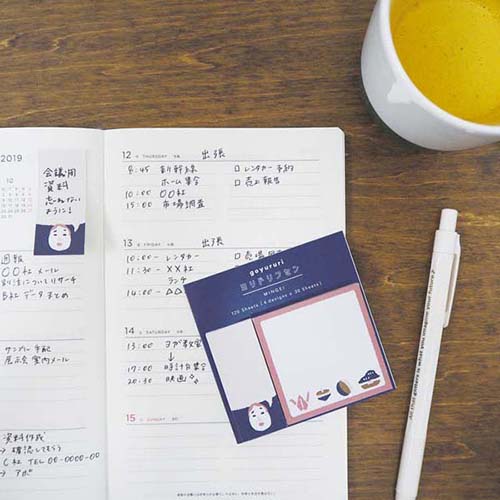 2019
10
会議用
資料
忘れない
ように!
週報
○○社 メール
B社 データまとめ
サンプル手配
展示会 案内メール
資料作成
→ 確認してもらう
C社 TEL 00-0000-00
→ アポ
12 THURSDAY 出張
8:45 新幹線
ホーム集合
10:00 ○○社
15:00 市場調査
□ レンタカー予約
□ 売上報告
13 FRIDAY 出張
10:00- レンタカー
11:30- ××社
ランチ
14:00- △△
14 SATURDAY
13:00 ヨガ教室
↓
17:00 時計台集合
20:30 映画
15 SUNDAY
goyururi
ミシドリフセン
MINGEI
120 Sheets ( 4 designs × 30 Sheets )